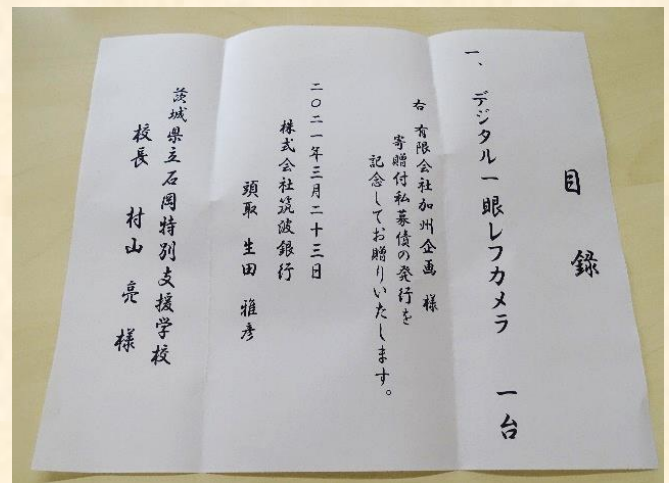 目録
一、デジタル一眼レフカメラ 一台
右 有限会社加州企画 様
寄贈付私募債の発行を
記念してお贈りいたします。
二〇二一年三月二十三日
株式会社筑波銀行
頭取 生田 雅彦
茨城県立石岡特別支援学校
校長 村山 亮 様